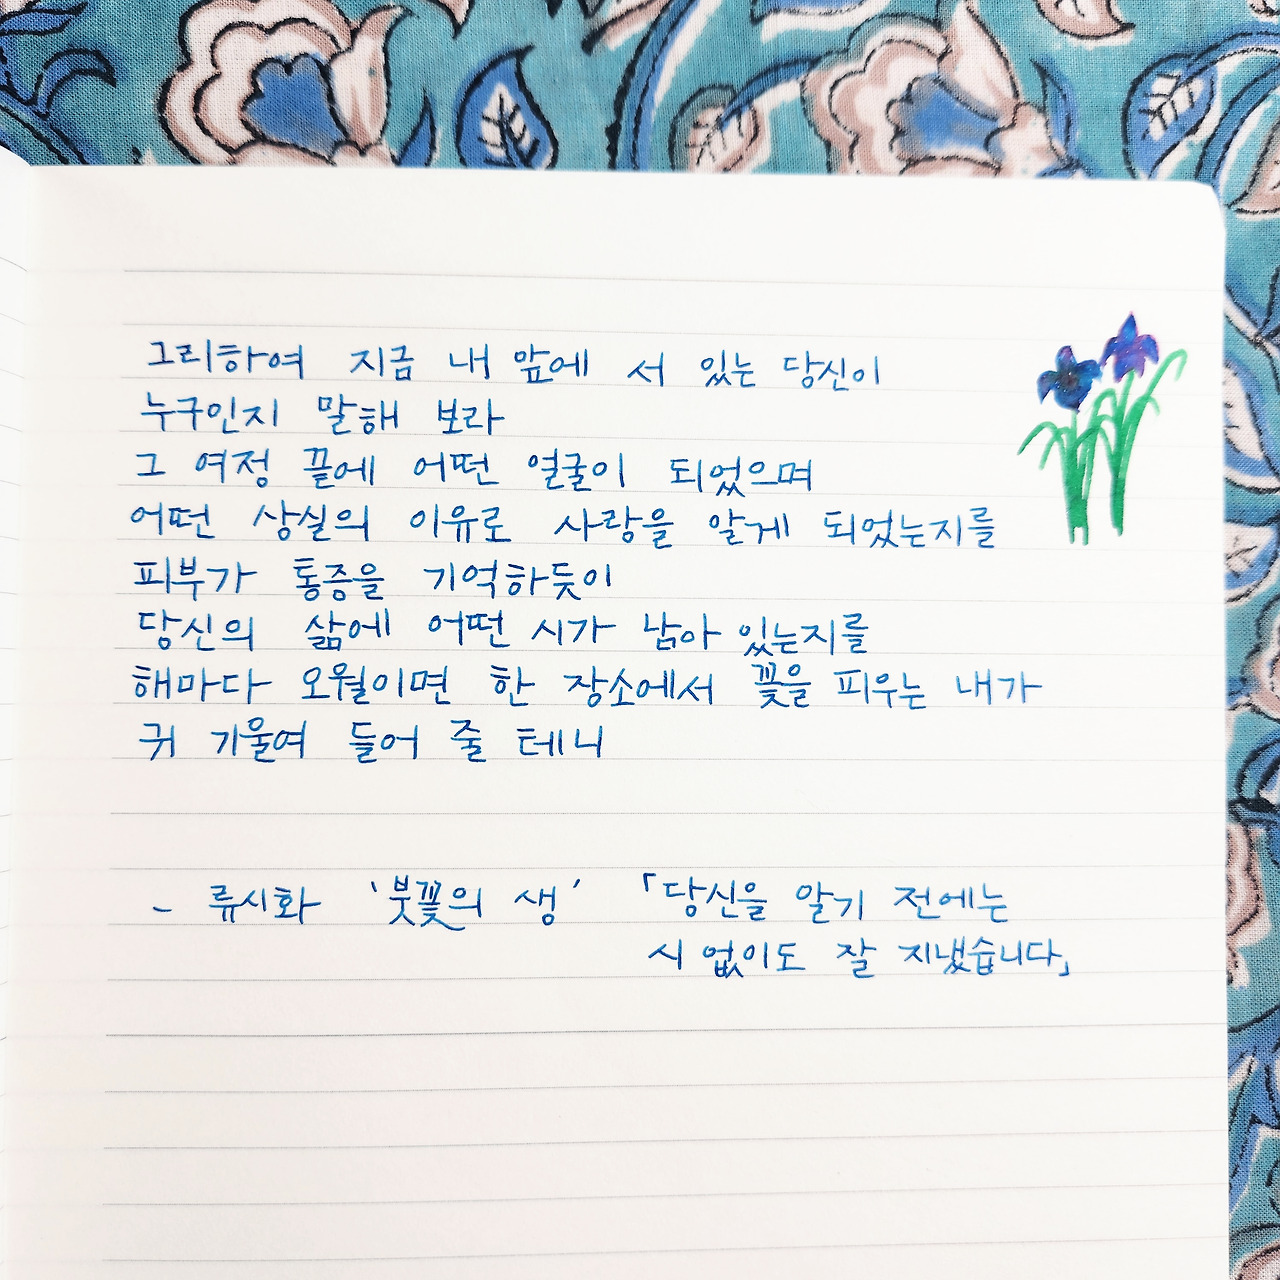 그리하여 지금 내 앞에 서 있는 당신이
누구인지 말해 보라
그 여정 끝에 어떤 얼굴이 되었으며
어떤 상실의 이유로 사랑을 알게 되었는지를
피부가 통증을 기억하듯이
당신의 삶에 어떤 시가 남아 있는지를
해마다 오월이면 한 장소에서 꽃을 피우는 내가
귀 기울여 들어 줄 테니
- 류시화 '붓꽃의 생' 「당신을 알기 전에는
시 없이도 잘 지냈습니다」